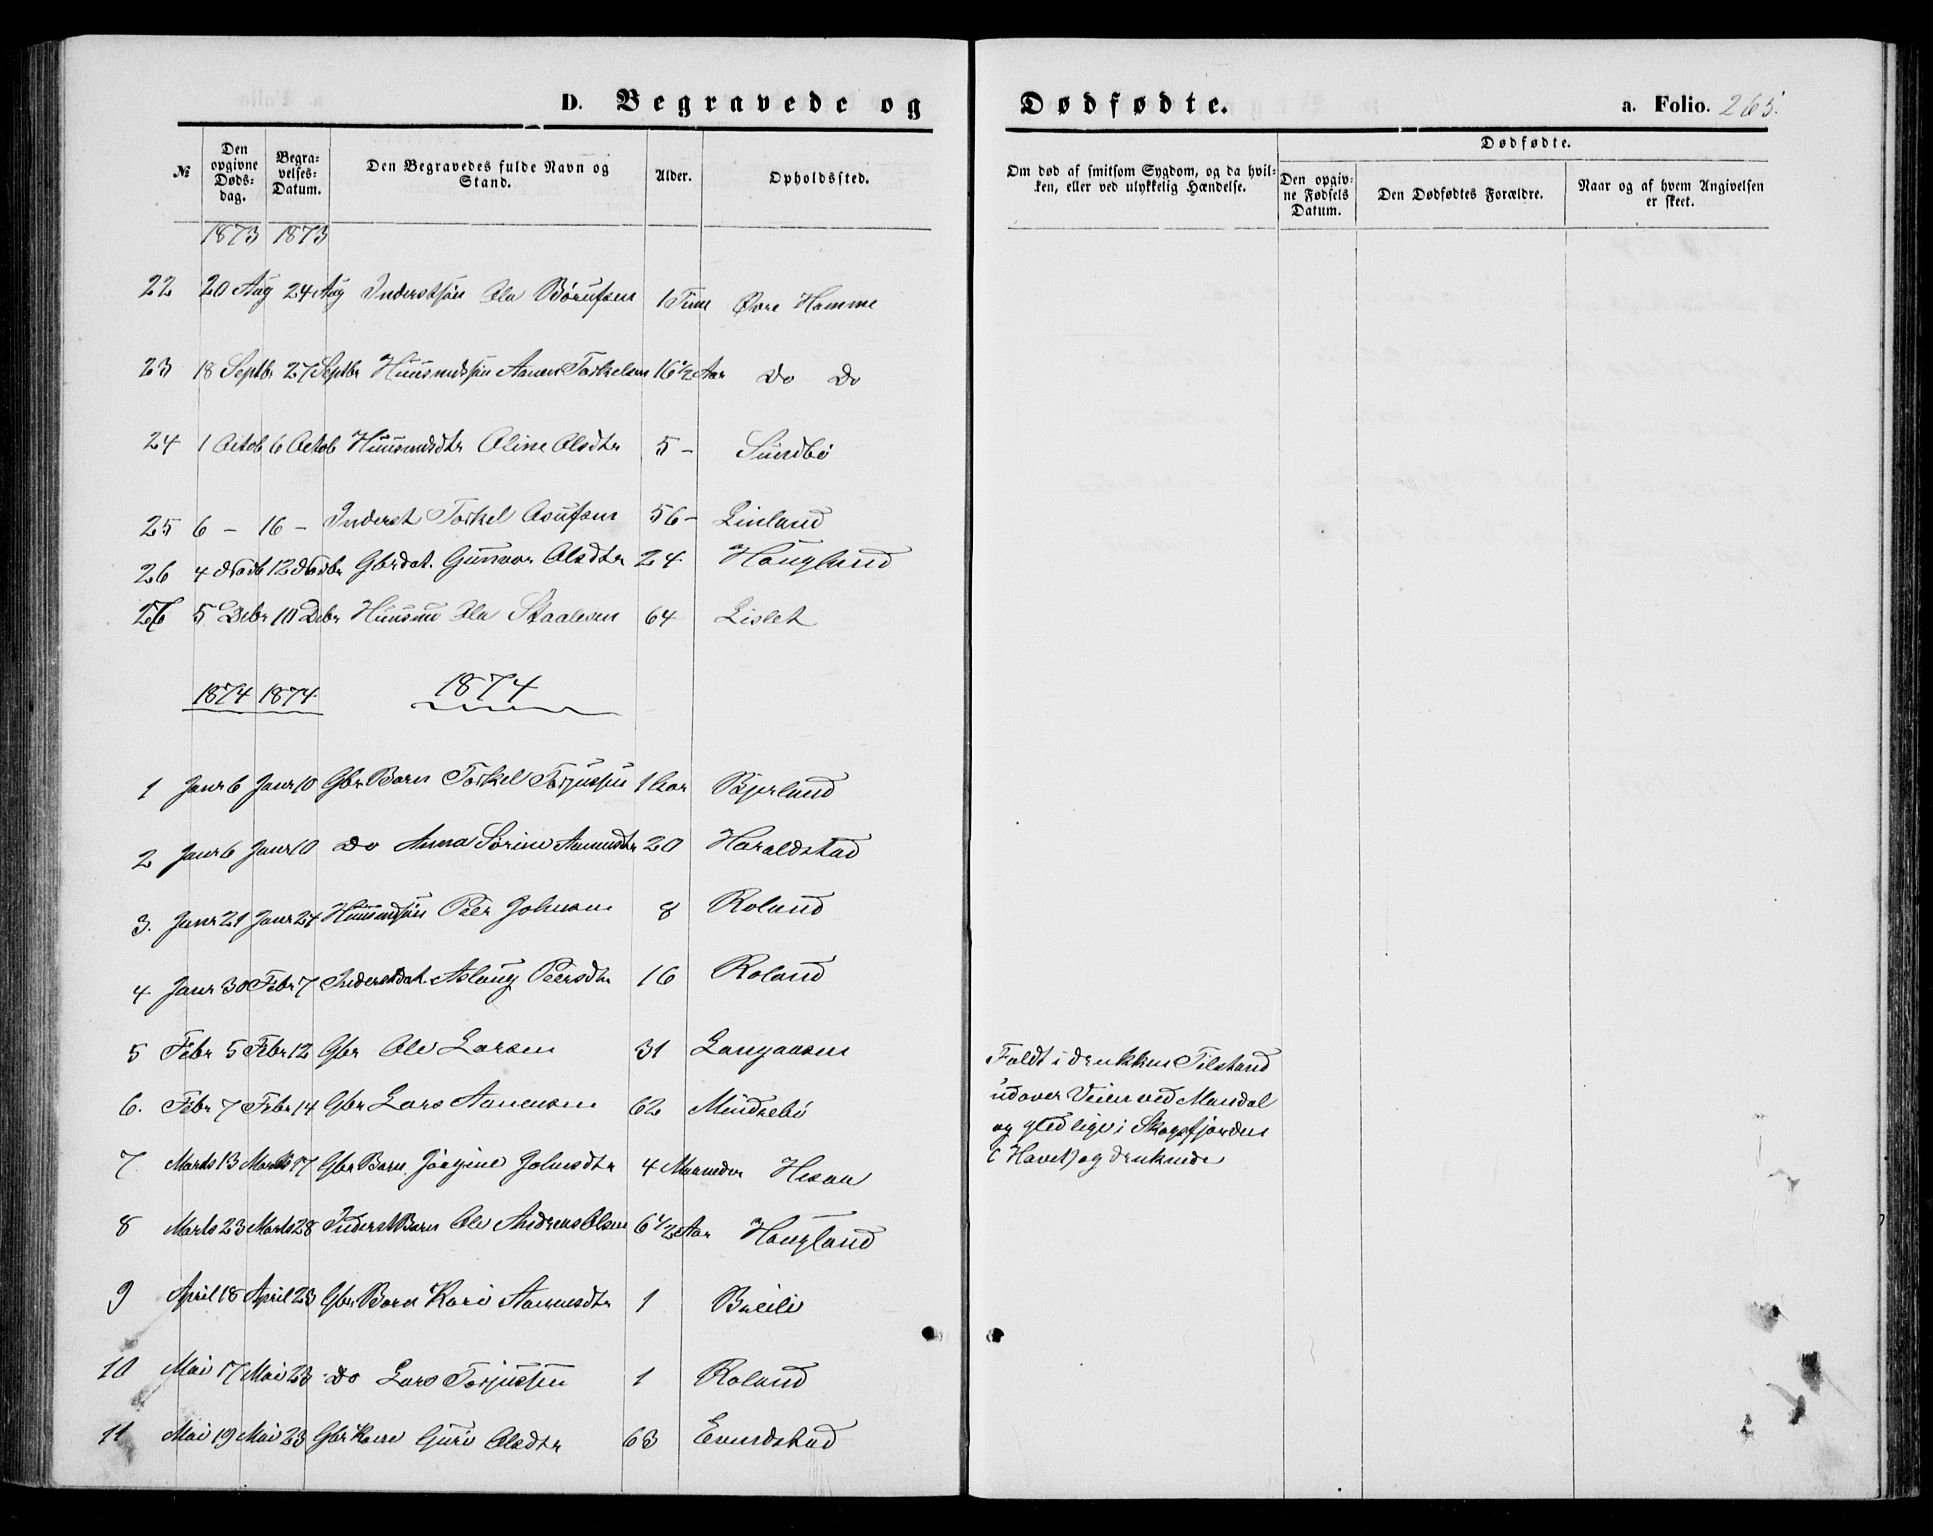 D. Begravede og Dødfødte. a. Folio. 265.
№ Den opgivne Døds-dag. Begra-velses-Datum. Den Begravedes fulde Navn og Stand. Alder. Opholdssted. Om død af smitsom Sygdom, og da hvil-ken, eller ved ulykkelig Hændelse. Dødfødte. Den opgiv-ne Fødsels Datum. Den Dødfødtes Forældre. Naar og af hvem Angivelsen er skeet.
1873 1873
22 20 Aug 24 Aug Inderstsøn Ola 1 Time Øvre Homme
23 18 Septbr 27 Septbr Huusmdsøn Aanen Torkelsen 16 1/2 Aar Do Do
24 1 Octob 6 Octob Huusmdsdtr Oline Olsdtr 5 – Sundbø
25 6 – 16 – Inderst Torkel 56 – Linland
26 4 Novb 12 Novbr Gbrdat. Gunvor Olsdtr 24 Hougland
26 5 Debr 10 Debr Huusmd Ola Staalesen 64 Lislet
1874 1874 1874
1 Janr 6 Janr 10 Gbr Barn Torkel Torjussen 1 Aar Bjerland
2 Janr 6 Janr 10 Do Anna Sørine 20 Haraldstad
3. Janr 21 Janr 27 Huusmdsøn Peer Johnsen 8 Roland
4 Janr 30 Febr 7 Inderstdat. Aslaug Peersdtr 16 Roland
5 Febr 5 Febr 12 Gbr Ole Larsen 31 Langaasen Faldt i drukken Tilstand
udover Veien ved Mandal
6. Febr 7 Febr 14 Gbr Lars Aanensen 62 Mindrebø
og gled lige i Skogsfjorden
7 Marts 13 Marts 17 Gbr Barn Jørgine Johnsdtr 4 Maaneder Hesaa
(Havet) og druknede
8 Marts 23 Marts 28 Inderst Barn Ole Andreas Olsen 6 1/2 Aar Hougland
9 April 18 April 23 Gbr Barn Kari Aanensdtr 1 Breili
10 Mai 17 Mai 23 Do Lars Torjussen 1 Roland
11 Mai 19 Mai 23 Gbr Kone Guro Olsdtr 63 Evindstad